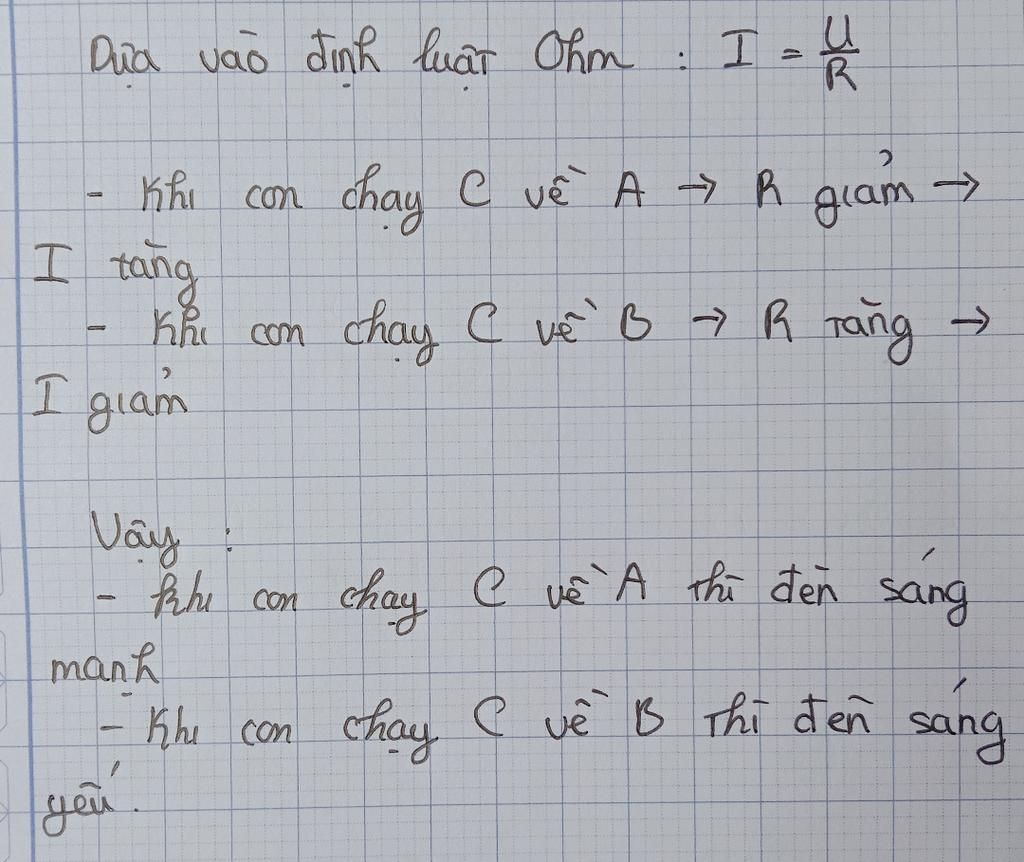 Dựa vào định luật Ohm : I = U/R
- Khi con chạy C về A → R giảm →
I tăng
- Khi con chạy C về B → R tăng →
I giảm
Vậy :
- Khi con chạy C về A thì đèn sáng
mạnh
- Khi con chạy C về B thì đèn sáng
yếu.